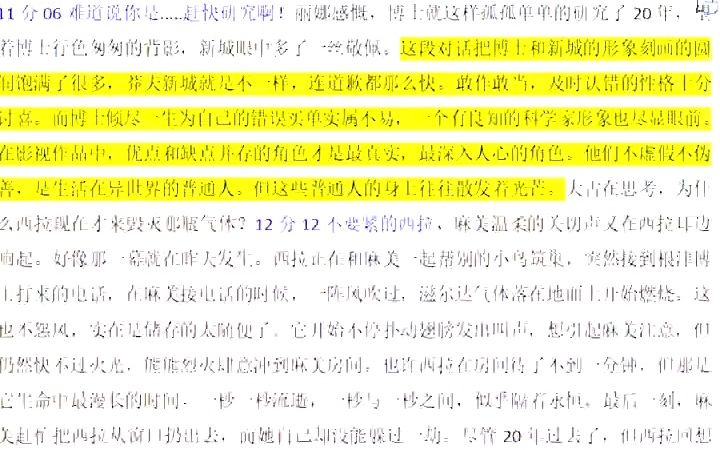 11 分 06 难道说你是.....赶快研究啊！丽娜感慨，博士就这样孤孤单单的研究了 20 年，
着博士行色匆匆的背影，新城眼中多了一丝敬佩。这段对话把博士和新城的形象刻画的圆
润饱满了很多，莽夫新城就是不一样，连道歉都那么快。敢作敢当，及时认错的性格十分
讨喜。而博士倾尽一生为自己的错误买单实属不易，一个有良知的科学家形象也尽显眼前。
在影视作品中，优点和缺点并存的角色才是最真实，最深入人心的角色。他们不虚假不伪
善，是生活在异世界的普通人。但这些普通人的身上往往散发着光芒。大古在思考，为什
么西拉现在才来毁灭那瓶气体？12 分 12 不要紧的西拉，麻美温柔的关切声又在西拉耳边
响起。好像那一幕就在昨天发生。西拉正在和麻美一起帮别的小鸟筑巢，突然接到根津博
士打来的电话，在麻美接电话的时候，一阵风吹过，滋尔达气体落在地面上开始燃烧。这
也不怨风，实在是储存的太随便了。它开始不停扑动翅膀发出叫声，想引起麻美注意，但
仍然快不过火光，熊熊烈火肆意冲到麻美房间，也许西拉在房间待了不到一分钟，但那是
它生命中最漫长的时间。一秒一秒流逝，一秒与一秒之间，似乎隔着永恒。最后一刻，麻
美赶忙把西拉从窗口扔出去，而她自己却没能躲过一劫。尽管 20 年过去了，但西拉回想